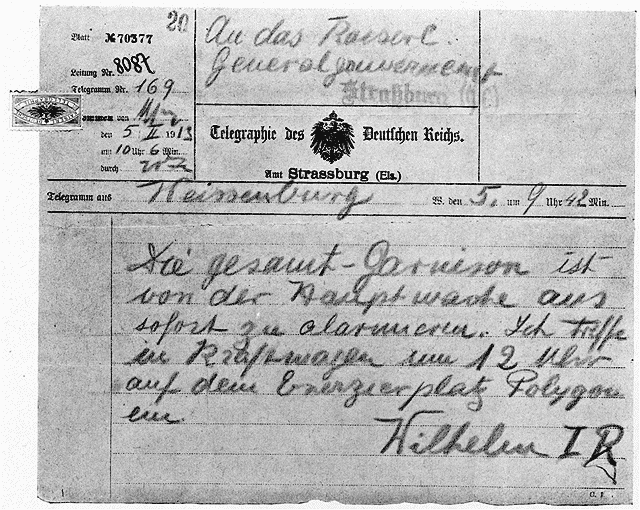 20
Blatt № 70377
Leitung Nr. 8087
Telegramm Nr. 169
den 5 II 1913
um 10 Uhr 6 Min.
durch
An das Kaiserl.
Generalgouvernement
Straßburg
Telegraphie des Deutschen Reichs.
Amt Strassburg (Els.)
Telegramm aus Weissenburg W. den 5. um 9 Uhr 42 Min.
Die gesamt-Garnison ist
von der Hauptwache aus
sofort zu alarmieren. Ich treffe
in Kraftwagen um 12 Uhr
auf dem Exerzierplatz Polygon
ein.
Wilhelm I R